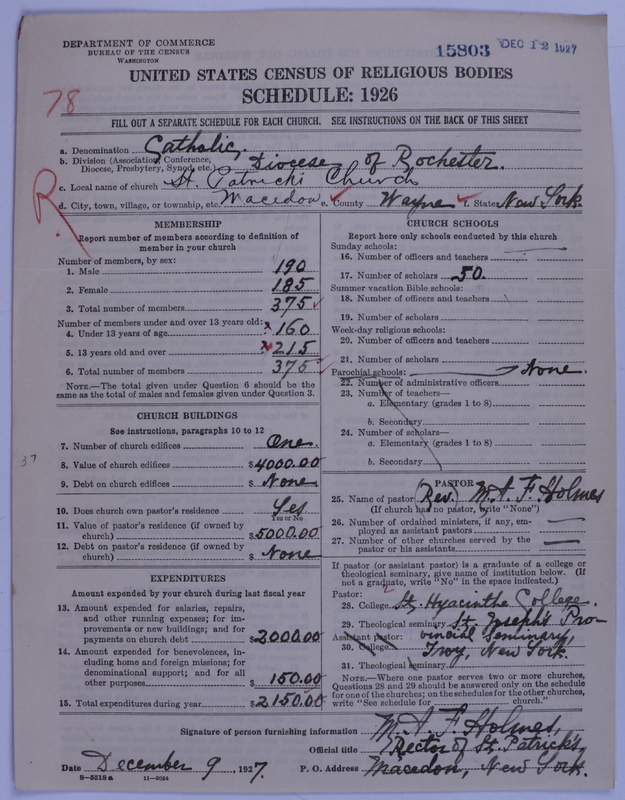 DEPARTMENT OF COMMERCE
BUREAU OF THE CENSUS
WASHINGTON
15803 DEC 12 1927
UNITED STATES CENSUS OF RELIGIOUS BODIES
SCHEDULE: 1926
78
FILL OUT A SEPARATE SCHEDULE FOR EACH CHURCH. SEE INSTRUCTIONS ON THE BACK OF THIS SHEET
a. Denomination Catholic,
b. Division (Association, Conference, Diocese, Presbytery, Synod, etc.) Diocese of Rochester.
c. Local name of church St. Patricks Church
R
d. City, town, village, or township, etc. Macedon e. County Wayne f. State New York
MEMBERSHIP
Report number of members according to definition of
member in your church
Number of members, by sex:
1. Male 190
2. Female 185
3. Total number of members 375
Number of members under and over 13 years old:
4. Under 13 years of age 160
5. 13 years old and over 215
6. Total number of members 375
NOTE.—The total given under Question 6 should be
the same as the total of males and females given under Question 3.
CHURCH BUILDINGS
See instructions, paragraphs 10 to 12
37
7. Number of church edifices One.
8. Value of church edifices $4000.00
9. Debt on church edifices $ None
10. Does church own pastor's residence Yes
Yes or No
11. Value of pastor's residence (if owned by
church) $5000.00
12. Debt on pastor's residence (if owned by
church) $ None
EXPENDITURES
Amount expended by your church during last fiscal year
13. Amount expended for salaries, repairs,
and other running expenses; for im-
provements or new buildings; and for
payments on church debt $2000.00
14. Amount expended for benevolences, in-
cluding home and foreign missions; for
denominational support; and for all
other purposes $150.00
15. Total expenditures during year $2150.00
CHURCH SCHOOLS
Report here only schools conducted by this church
Sunday schools:
16. Number of officers and teachers
17. Number of scholars 50.
Summer vacation Bible schools:
18. Number of officers and teachers
19. Number of scholars
Week-day religious schools:
20. Number of officers and teachers
21. Number of scholars
Parochial schools: None.
22. Number of administrative officers
23. Number of teachers—
a. Elementary (grades 1 to 8)
b. Secondary
24. Number of scholars—
a. Elementary (grades 1 to 8)
b. Secondary
PASTOR
25. Name of pastor (Rev.) M. A. F. Holmes
(If church has no pastor, write "None")
26. Number of ordained ministers, if any, em-
ployed as assistant pastors
27. Number of other churches served by the
pastor or his assistants
If pastor (or assistant pastor) is a graduate of a college or
theological seminary, give name of institution below. (If
not a graduate, write "No" in the space indicated.)
Pastor:
28. College St. Hyacinthe College.
29. Theological seminary St. Joseph's Pro-
Assistant pastor: vincial Seminary,
30. College Troy, New York.
31. Theological seminary
NOTE.—Where one pastor serves two or more churches,
Questions 28 and 29 should be answered only on the schedule
for one of the churches; on the schedules for the other churches,
write "See schedule for church."
Signature of person furnishing information M. A. F. Holmes,
Official title Rector of St. Patrick's,
Date December 9, 1927. P. O. Address Macedon, New York.
8-5518a 11-9024